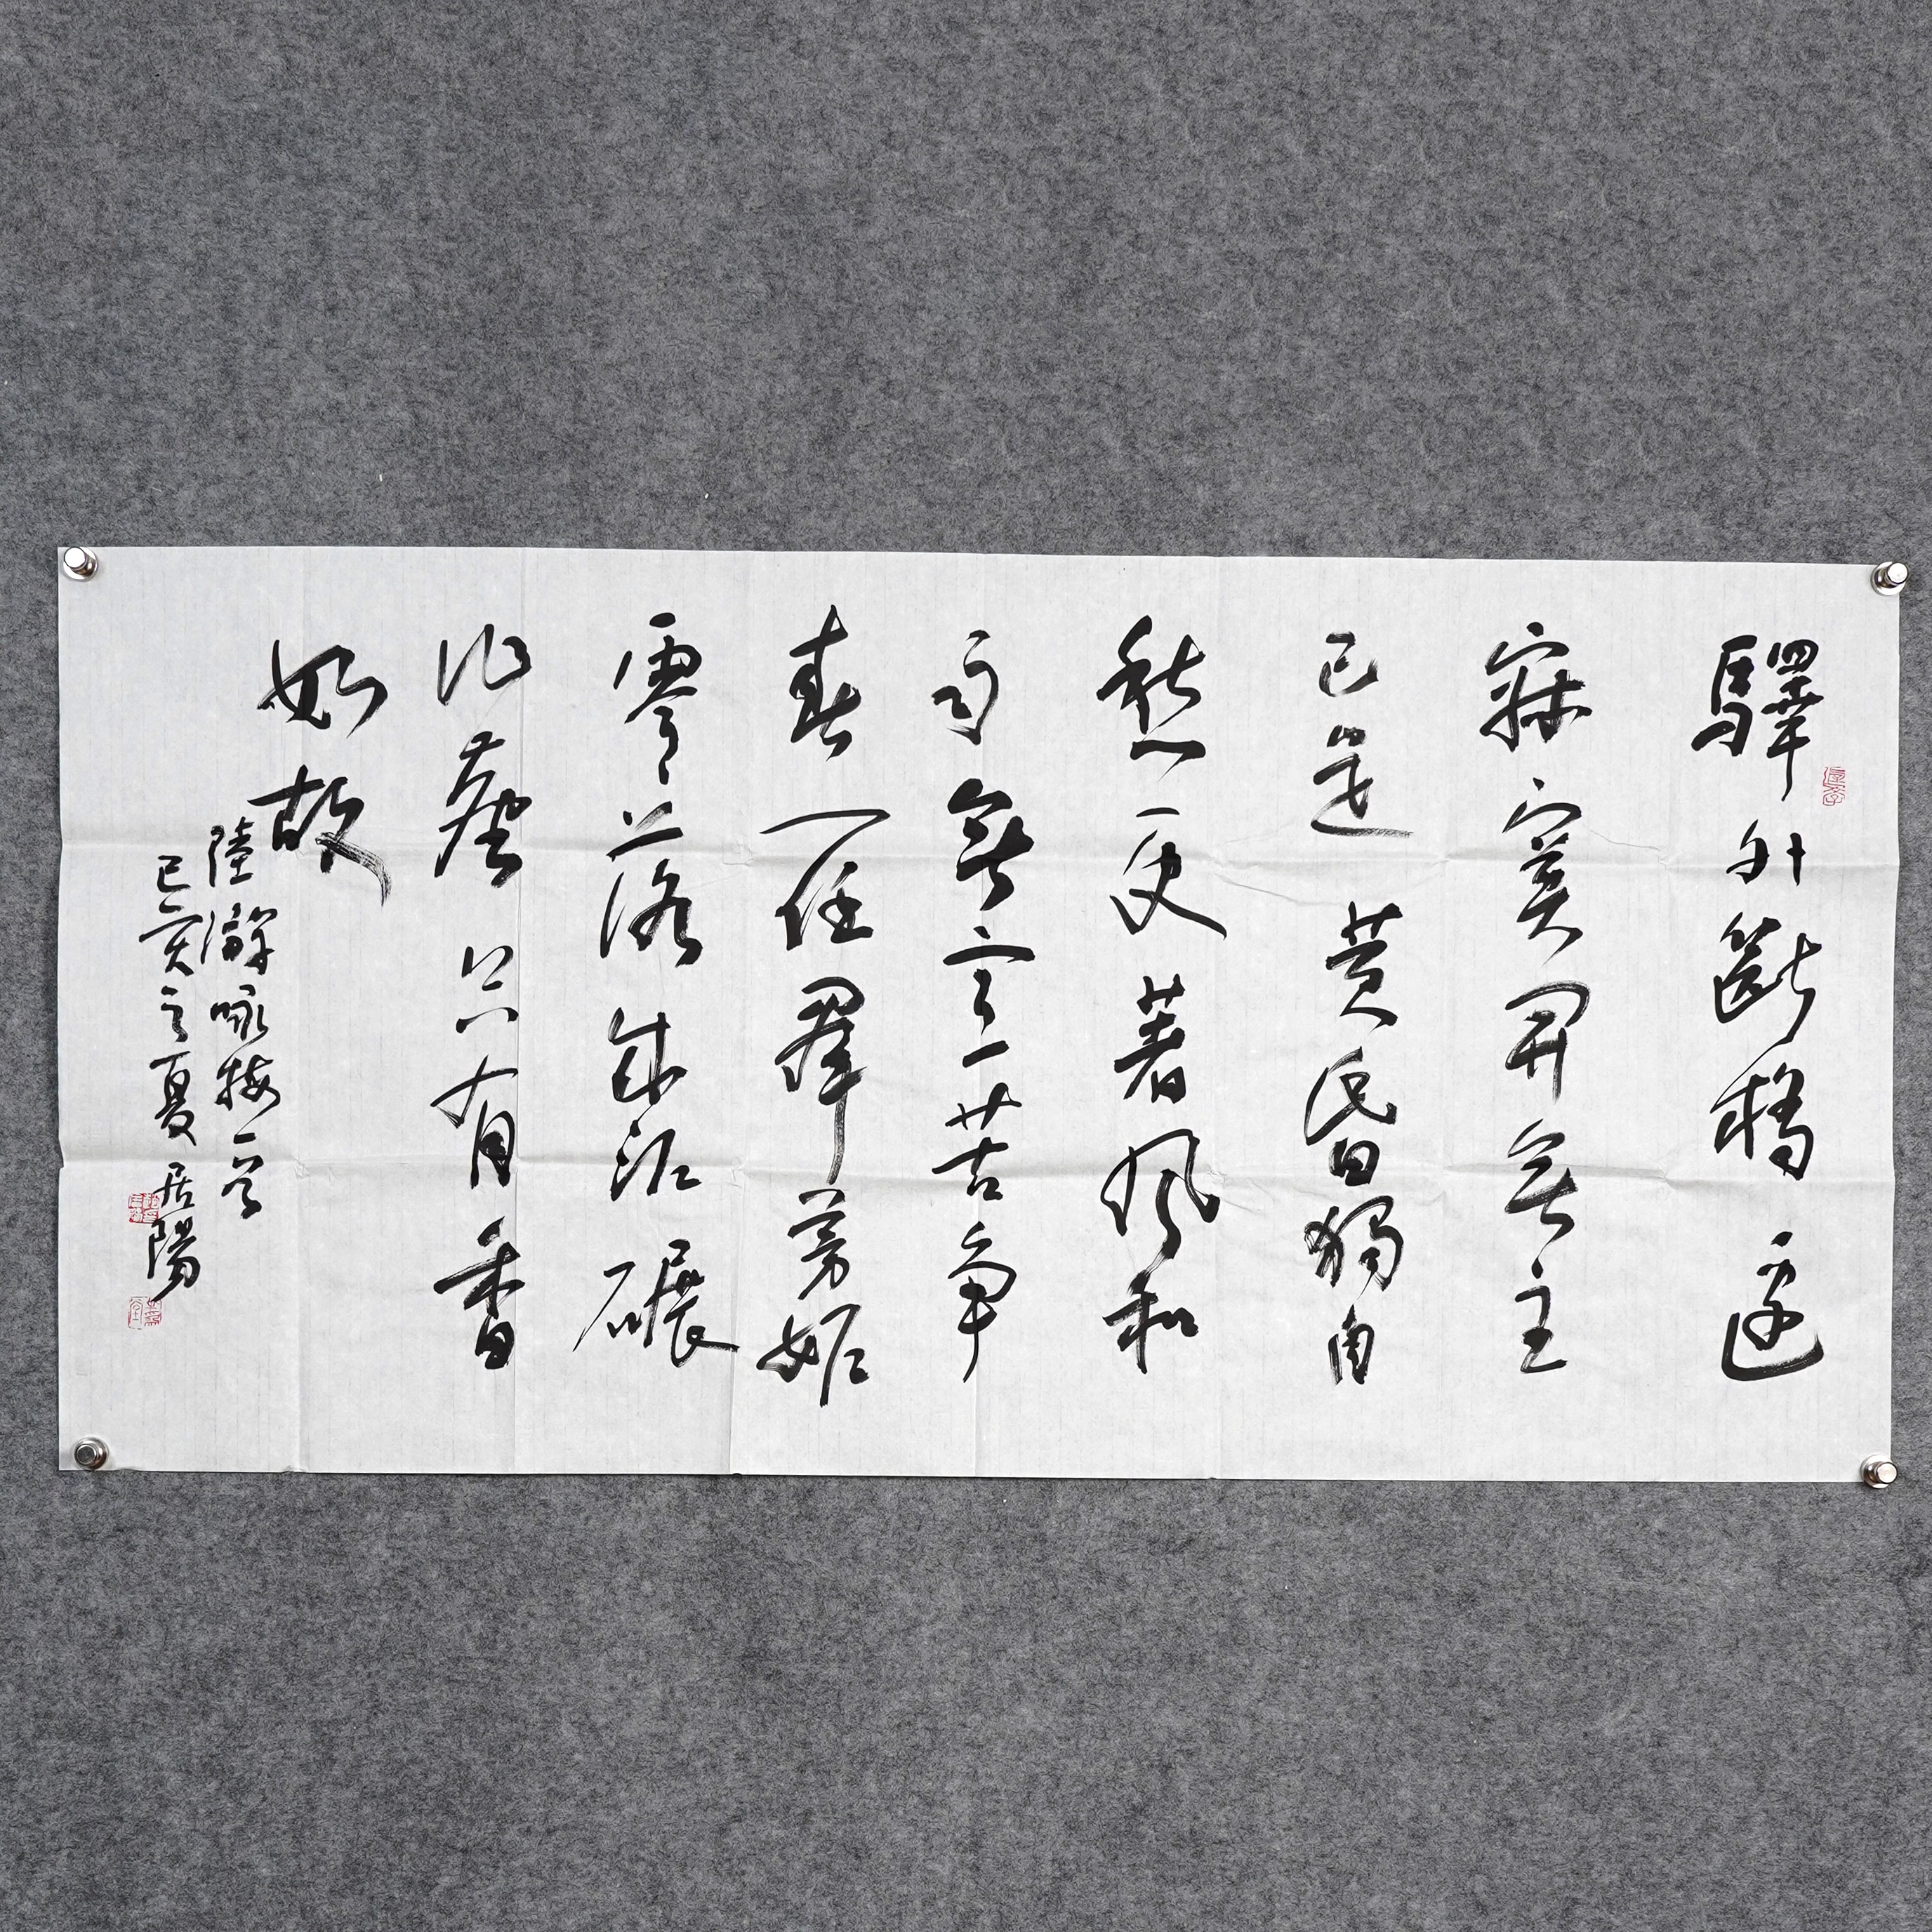 驛外斷橋邊
寂寞開無主
已是黃昏獨自
愁更著風和
雨無意苦爭
春一任羣芳妒
零落成泥碾
作塵只有香
如故
陸游咏梅一首
己亥之夏居陽